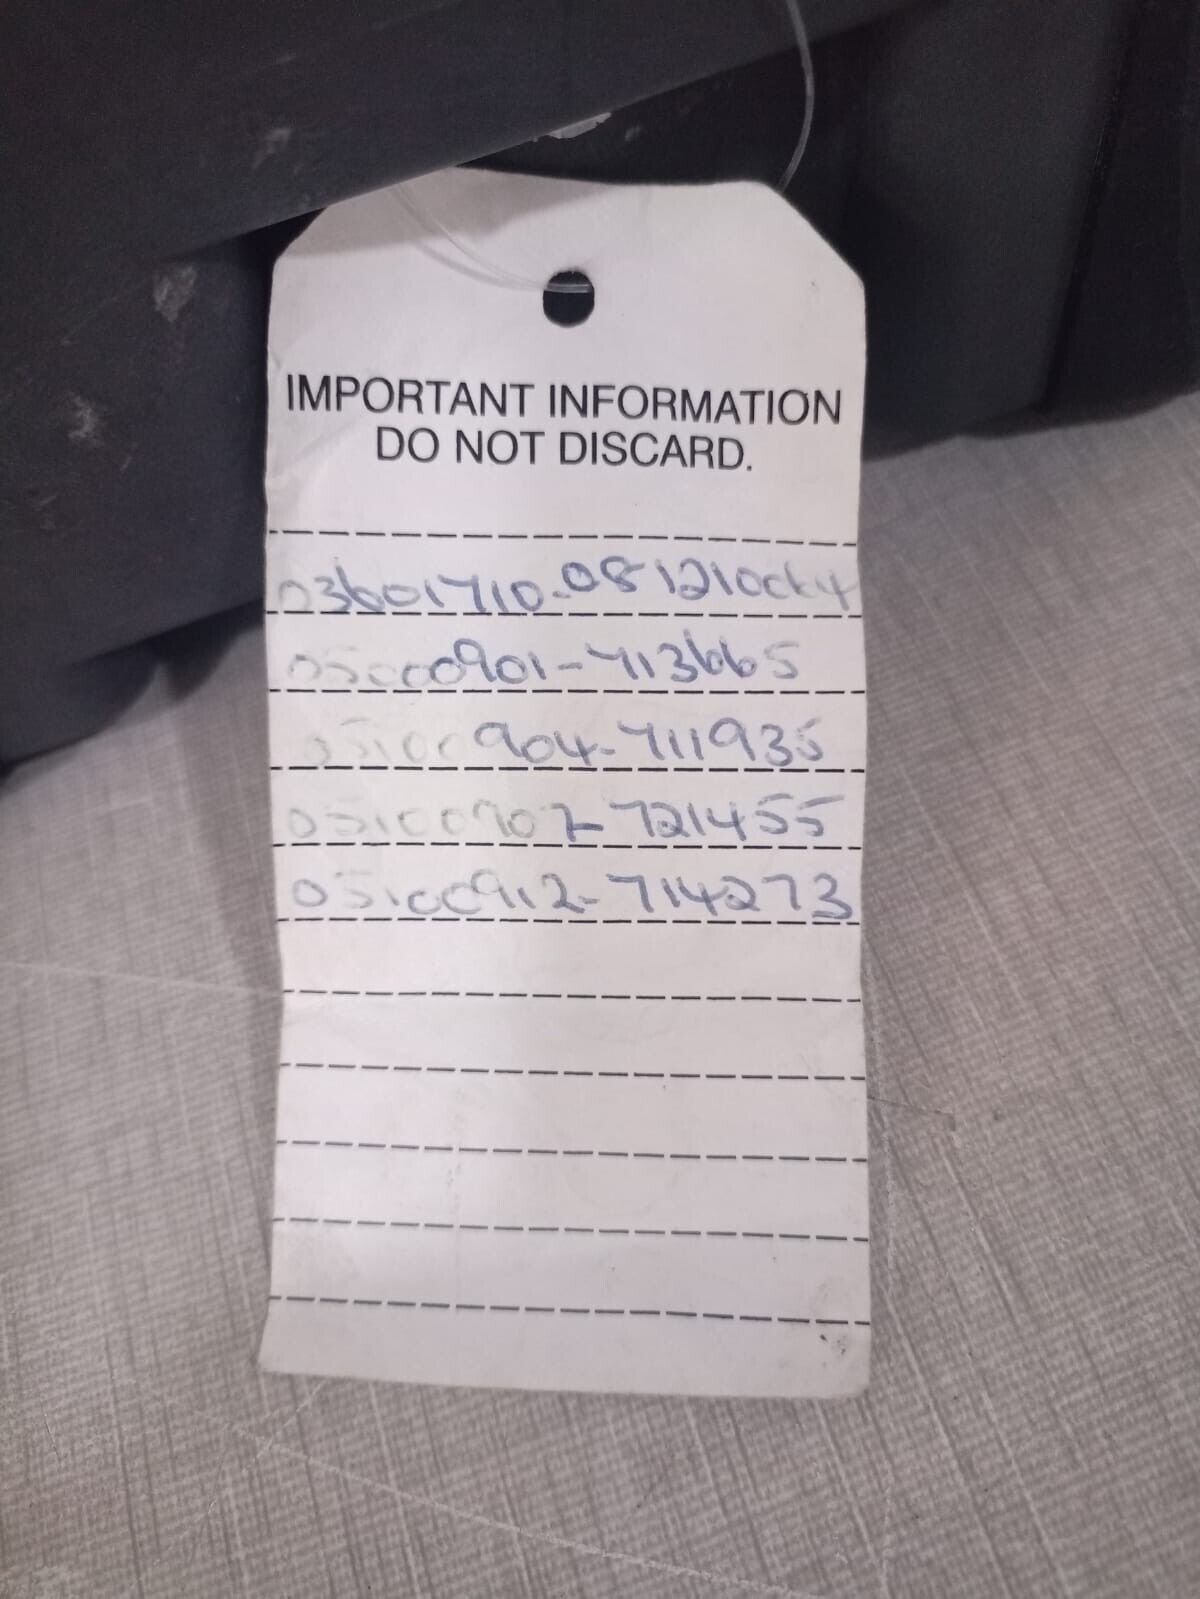 IMPORTANT INFORMATION
DO NOT DISCARD.
03601710-
05000901-713665
05100904-711935
05100907-721455
05100912-714273